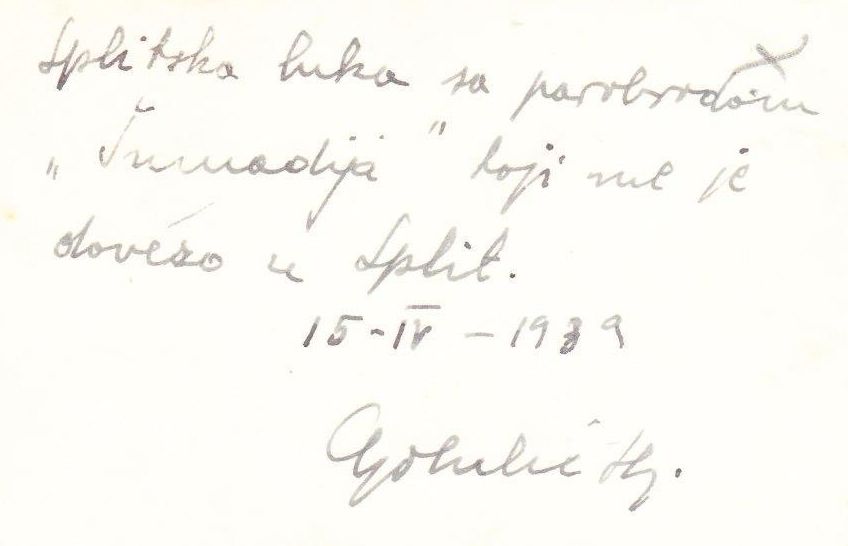 Splitska luka sa parobrodom
„Šumadija" koji me je
dovezo u Split.
15-IV-1939
Golubić